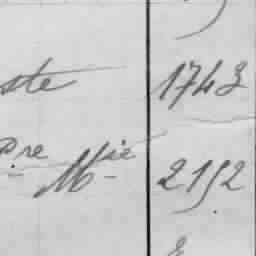 ste 1743
Pre Mie 2152